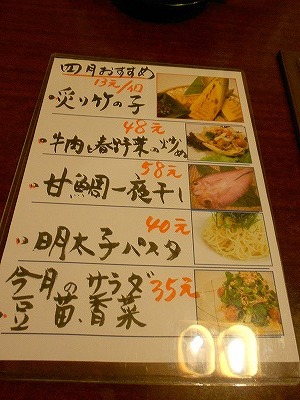 四月おすすめ
13元/1口
炙り竹の子
48元
牛肉と春野菜の炒め
58元
甘鯛一夜干し
40元
明太子パスタ
今月のサラダ 35元
豆苗、香菜